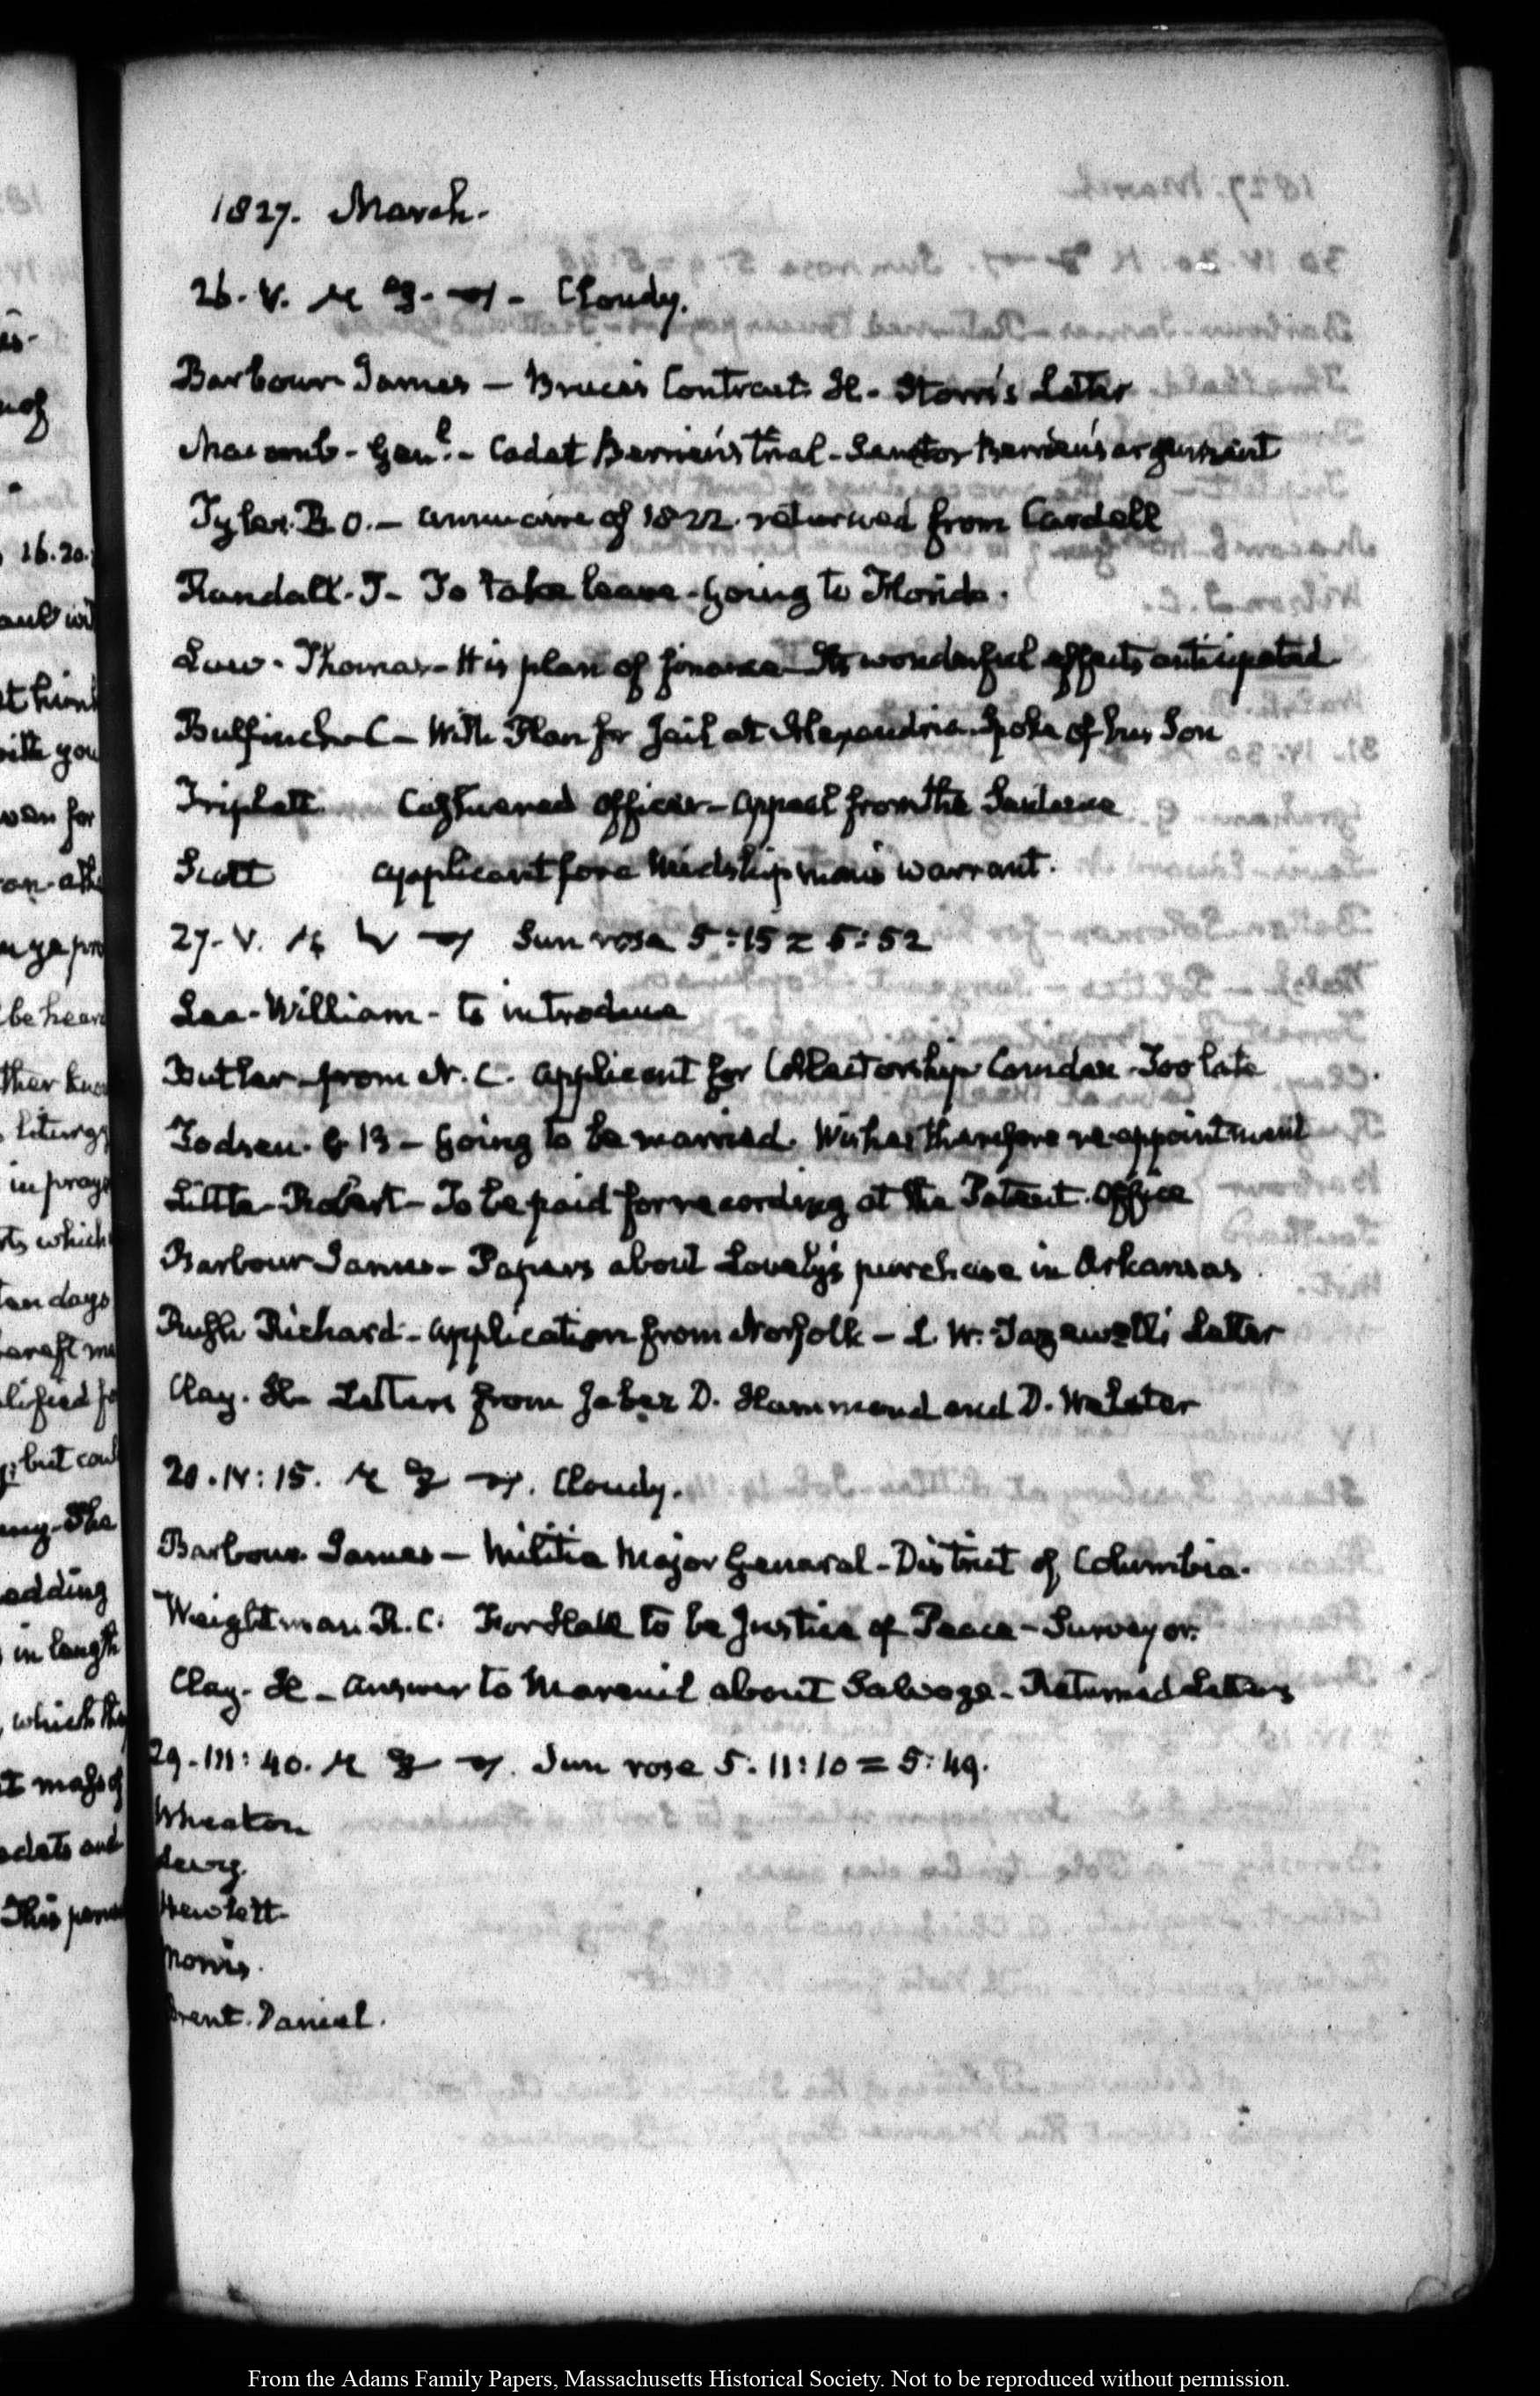 1827. March.
26. V. Cloudy.
Barbour James – Bruce's Contract. H. Storrs's Letter
Macomb – Genl. – Cadet Berrien's trial – Senator Berrien's argument
Tyler. B O. – annuaire of 1822. returned from Cardell
Randall. T – To take leave – going to Florida.
Law. Thomas – His plan of finance – Its wonderful effects anticipated
Bulfinch C – With Plan for Jail at Alexandria. Spoke of his Son
Triplett Cashiered Officer – appeal from the Sentence
Scott applicant for a Midshipman's warrant.
27. V. Sun rose 5:15 = 5:52
Lee – William – to introduce
Butler – from N. C. applicant for Collectorship Camden – Too late
Todsen. G B – going to be married. Wishes therefore re-appointment
Little – Robert – To be paid for recording at the Patent Office
Barbour James – Papers about Lovely's purchase in Arkansas
Rush Richard – application from Norfolk – L. W. Tazewell's Letter
Clay. H – Letters from Jabez D. Hammond and D. Webster
28. IV: 15. Cloudy.
Barbour. James – Militia Major General – District of Columbia.
Weightman. R. C. For to be Justice of Peace – Surveyor.
Clay. H – answer to Mareuil about Salvage – Returned Letters
29. III: 40. Sun rose 5:11:10 = 5:49.
Wheaton
Hewlett
Morris.
Brent. Daniel.
16. 20.
be hear
liturgy
in pray
which
ten days
lified
but
The
adding
in length
which the
mass of
and
This
From the Adams Family Papers, Massachusetts Historical Society. Not to be reproduced without permission.